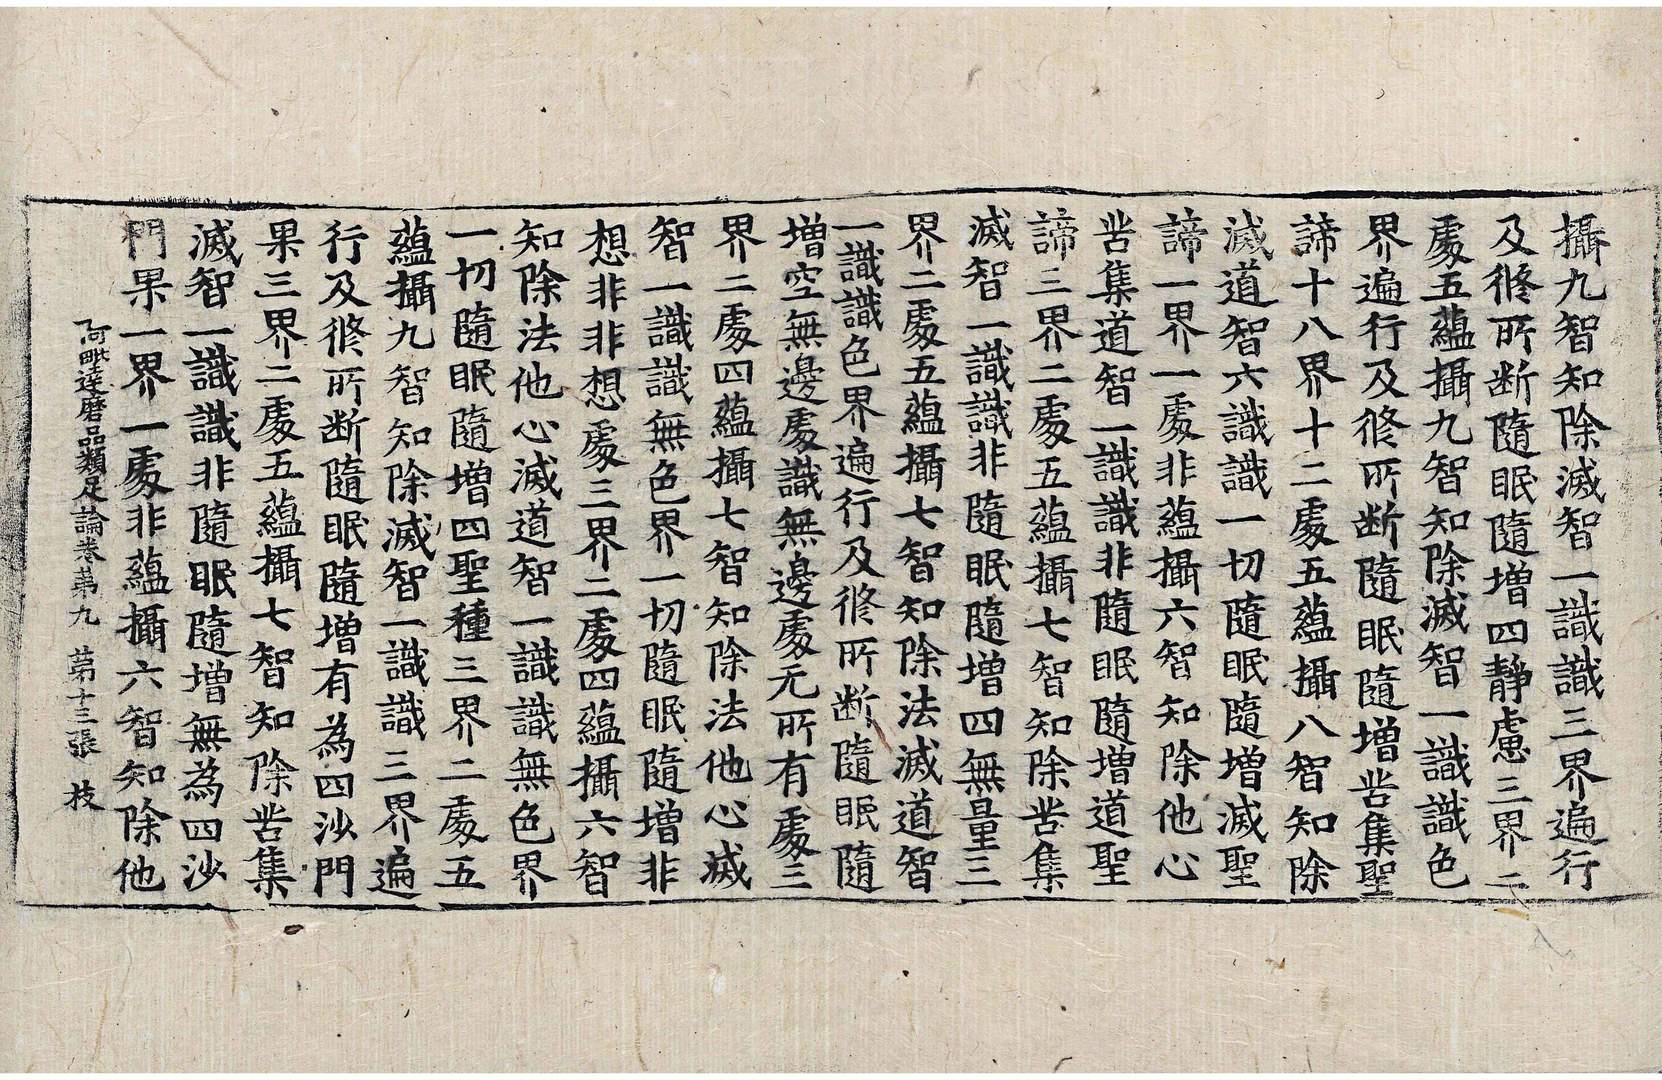 攝九智知除滅智一識識三界遍行
及修所断隨眠隨增四靜慮三界二
處五蘊攝九智知除滅智一識識色
界遍行及修所断隨眠隨增苦集聖
諦十八界十二處五蘊攝八智知除
滅道智六識識一切隨眠隨增滅聖
諦一界一處非蘊攝六智知除他心
苦集道智一識識非隨眠隨增道聖
諦三界二處五蘊攝七智知除苦集
滅智一識識非隨眠隨增四無量三
界二處五蘊攝七智知除法滅道智
一識識色界遍行及修所断隨眠隨
增空無邊處識無邊處无所有處三
界二處四蘊攝七智知除法他心滅
智一識識無色界一切隨眠隨增非
想非非想處三界二處四蘊攝六智
知除法他心滅道智一識識無色界
一切隨眠隨增四聖種三界二處五
蘊攝九智知除滅智一識識三界遍
行及修所断隨眠隨增有為四沙門
果三界二處五蘊攝七智知除苦集
滅智一識識非隨眠隨增無為四沙
門果一界一處非蘊攝六智知除他
阿毗達磨品類足論卷第九　第十三張　枝